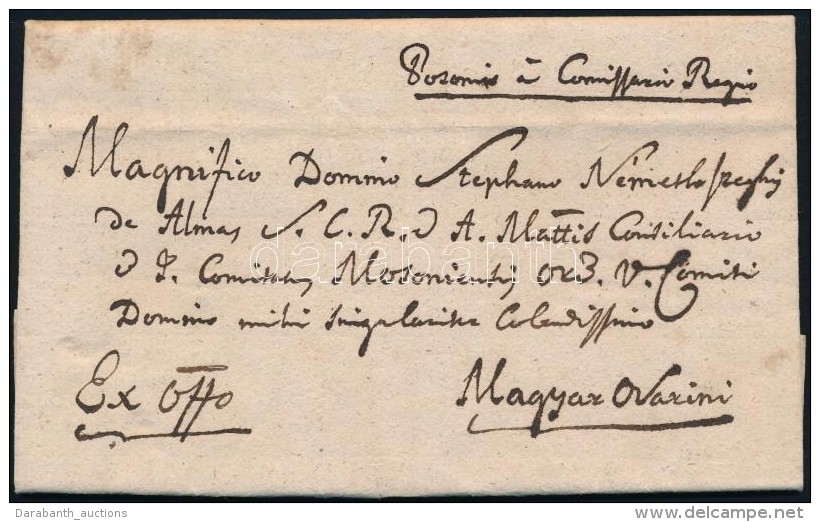 Posonio à Comissario Regio
Magnifico Domino Stephano Némethszeghy
de Almas S. C. R. & A. Mattis Consiliario
& I. Comitatus Mosoniensis Ord. V. Comiti
Domino mihi singulariter Colendissimo
Ex Offo
Magyar Ovarini
darabanth
Darabanth_auctions
www.delcampe.net